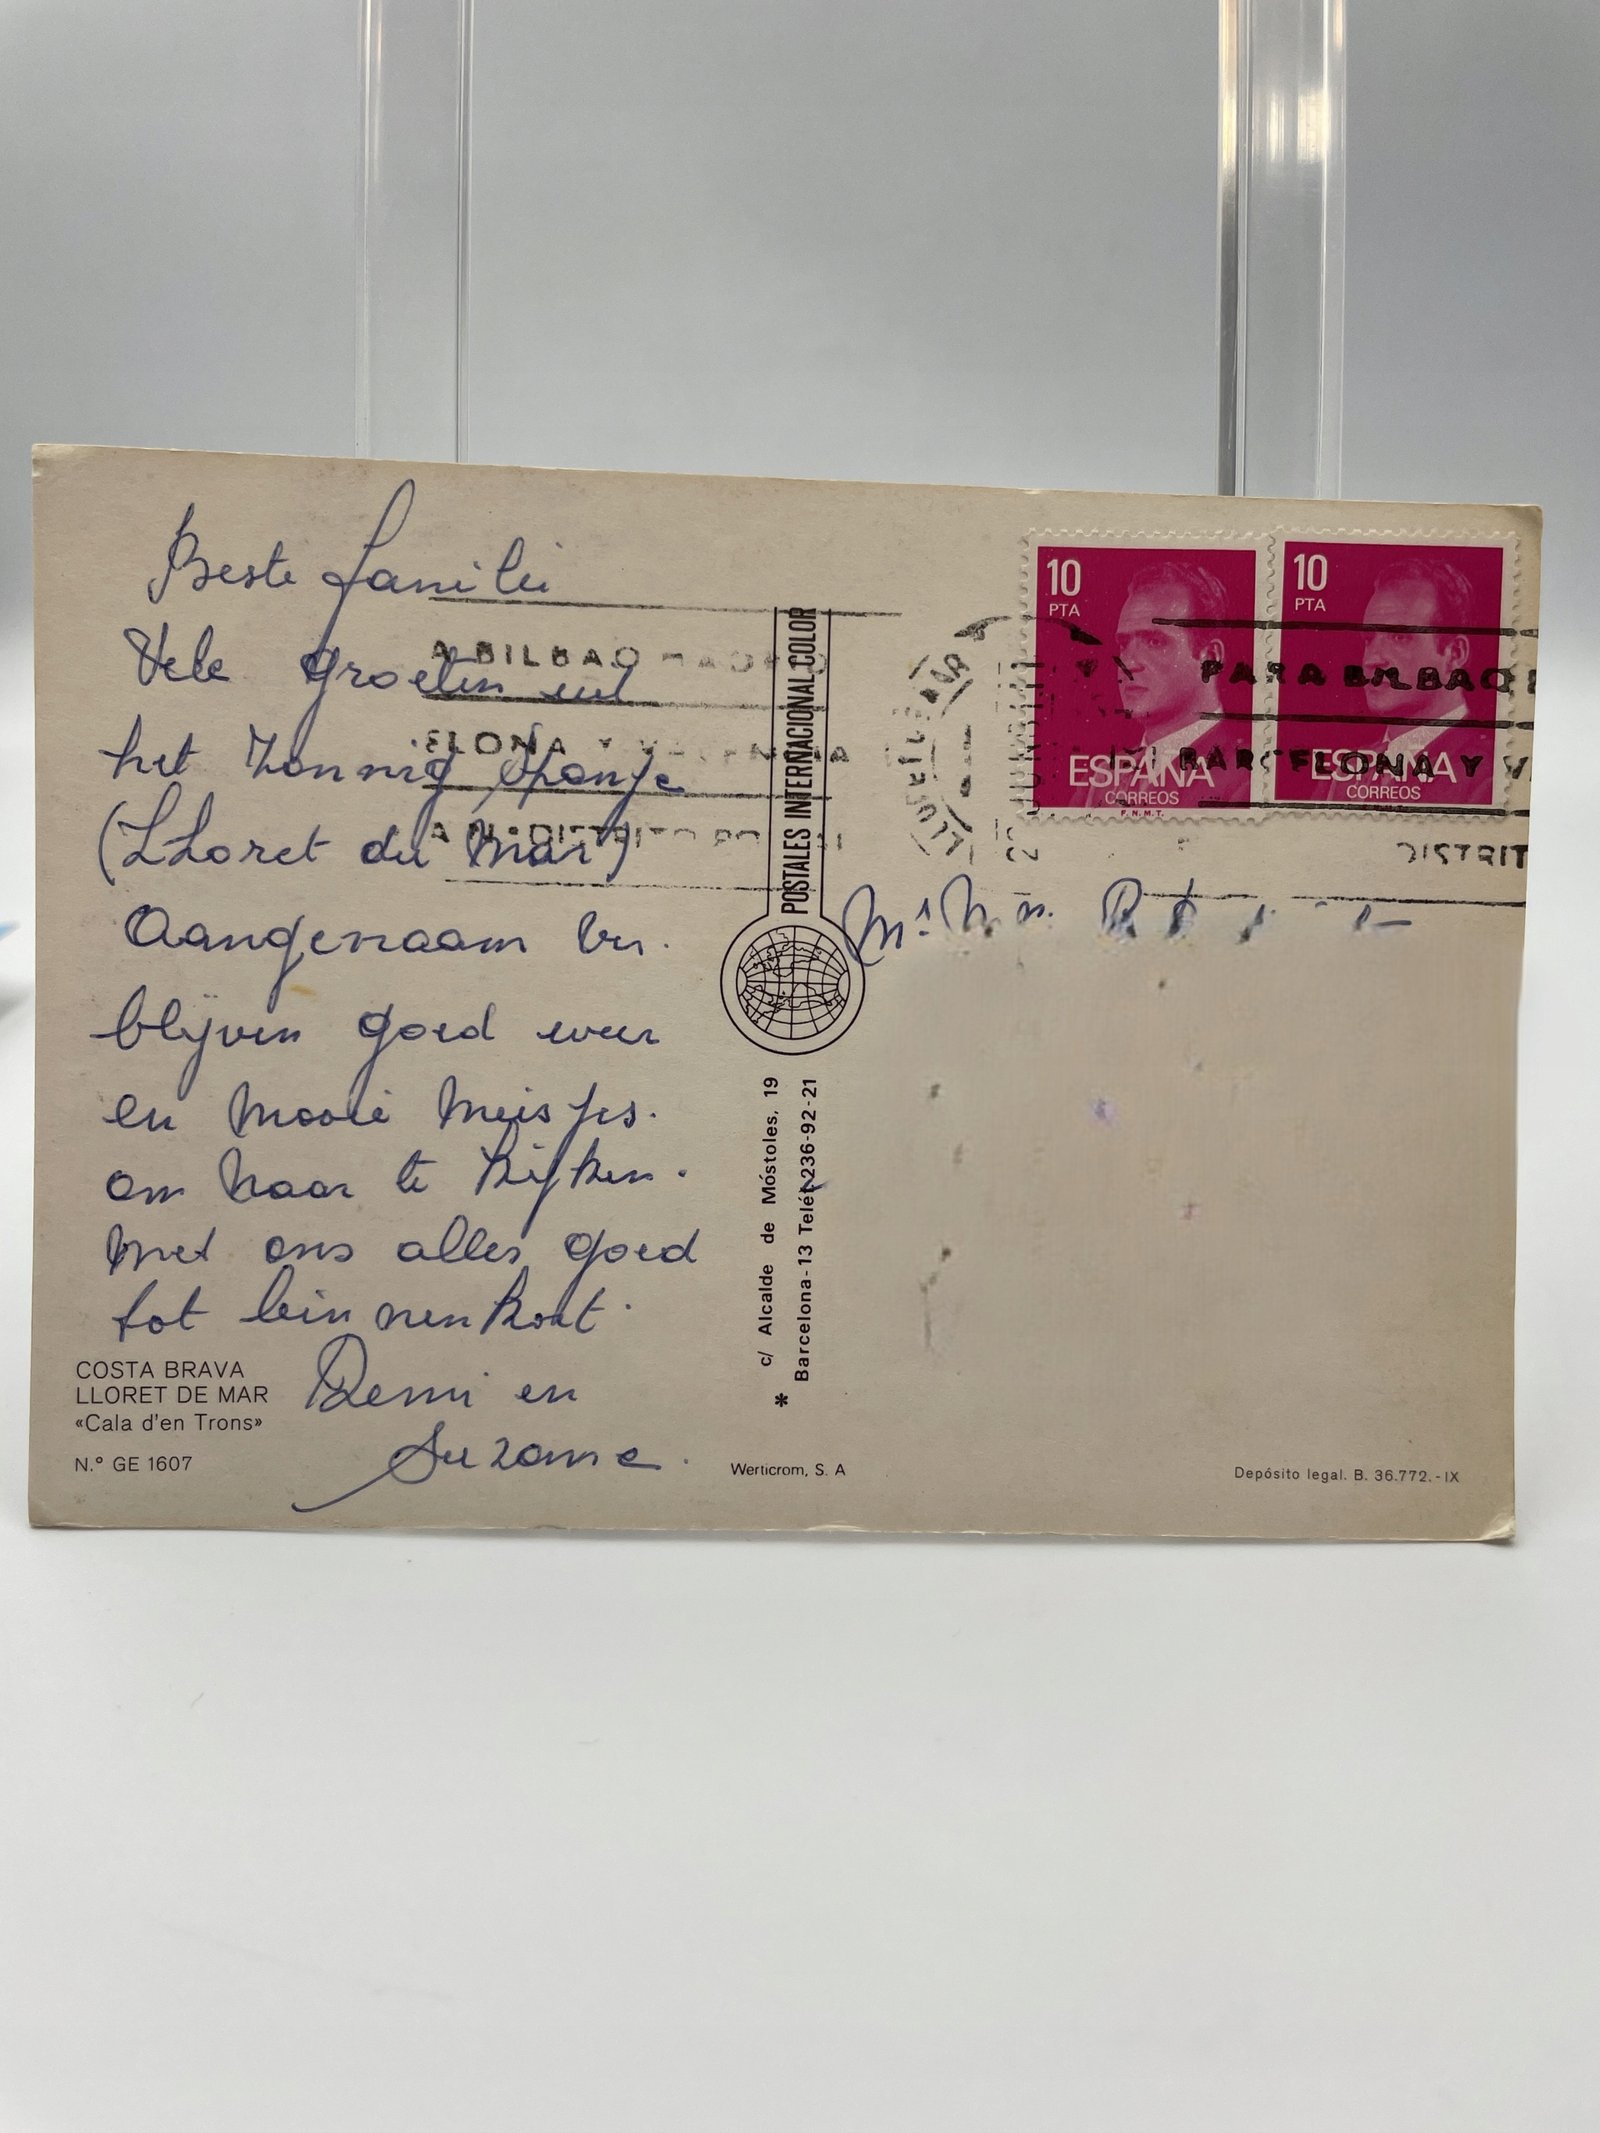 Beste familie
Vele groeten uit
het zonnig Spanje
(LLoret du Mar)
Aangenaam ver.
blijven goed weer
en mooie meisjes.
om naar te kijken.
Met ons alles goed
tot binnenkort.
Remi en
Suzanne.
COSTA BRAVA
LLORET DE MAR
«Cala d'en Trons»
N.º GE 1607
POSTALES INTERNACIONAL COLOR
c/ Alcalde de Móstoles, 19
Barcelona-13 Teléf. 236-92-21
*
Werticrom, S. A
10
PTA
ESPAÑA
CORREOS
F.N.M.T.
10
PTA
ESPAÑA
CORREOS
PARA BILBAO
BARCELONA Y V
DISTRIT
A BILBAO MADRID
ELONA Y VALENCIA
A Nº DISTRITO POSTAL
Depósito legal. B. 36.772.-IX